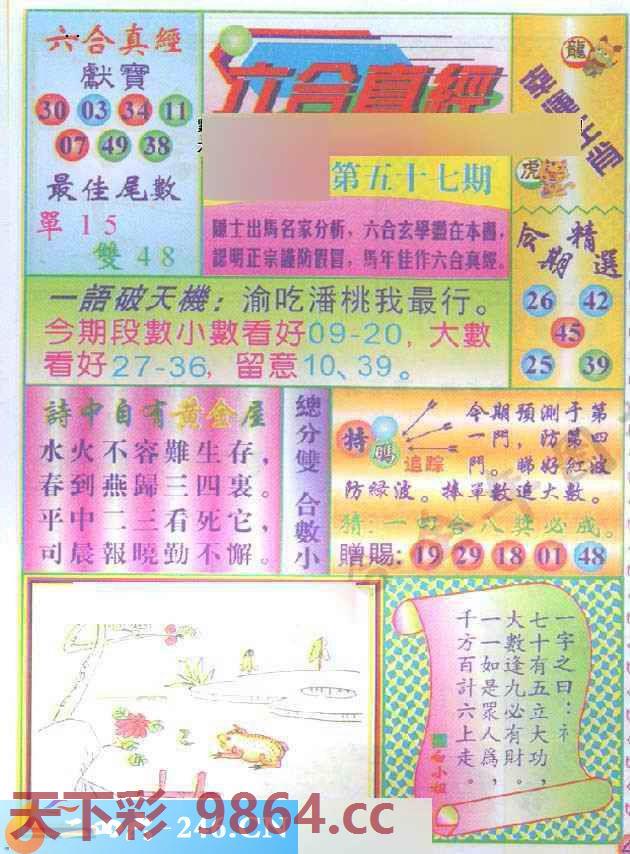 六合真經
獻寶
30 03 34 11
07 49 38
最佳尾數
單 15
雙 48
六合真經
第五十七期
隱士出馬名家分析，六合玄學盡在本圖，
認明正宗謹防假冒，馬年佳作六合真經。
龍
虎
今期精選
26 42
45
25 39
一語破天機：渝吃潘桃我最行。
今期段數小數看好09-20，大數
看好27-36，留意10、39。
詩中自有黃金屋
水火不容難生存，
春到燕歸三四裏。
平中二三看死它，
司晨報曉勤不懈。
總分雙 合數小
特碼追踪
今期預測于第
一門，防第四
門。睇好紅波
防綠波。捧單數追大數。
猜：一四合八獎必成。
贈賜：19 29 18 01 48
一字之曰：衤
七十有五立大功，
大數逢九必有財。
一一如是眾人為，
千方百計六上走。
白小姐
天下彩 9864.cc
246.CN